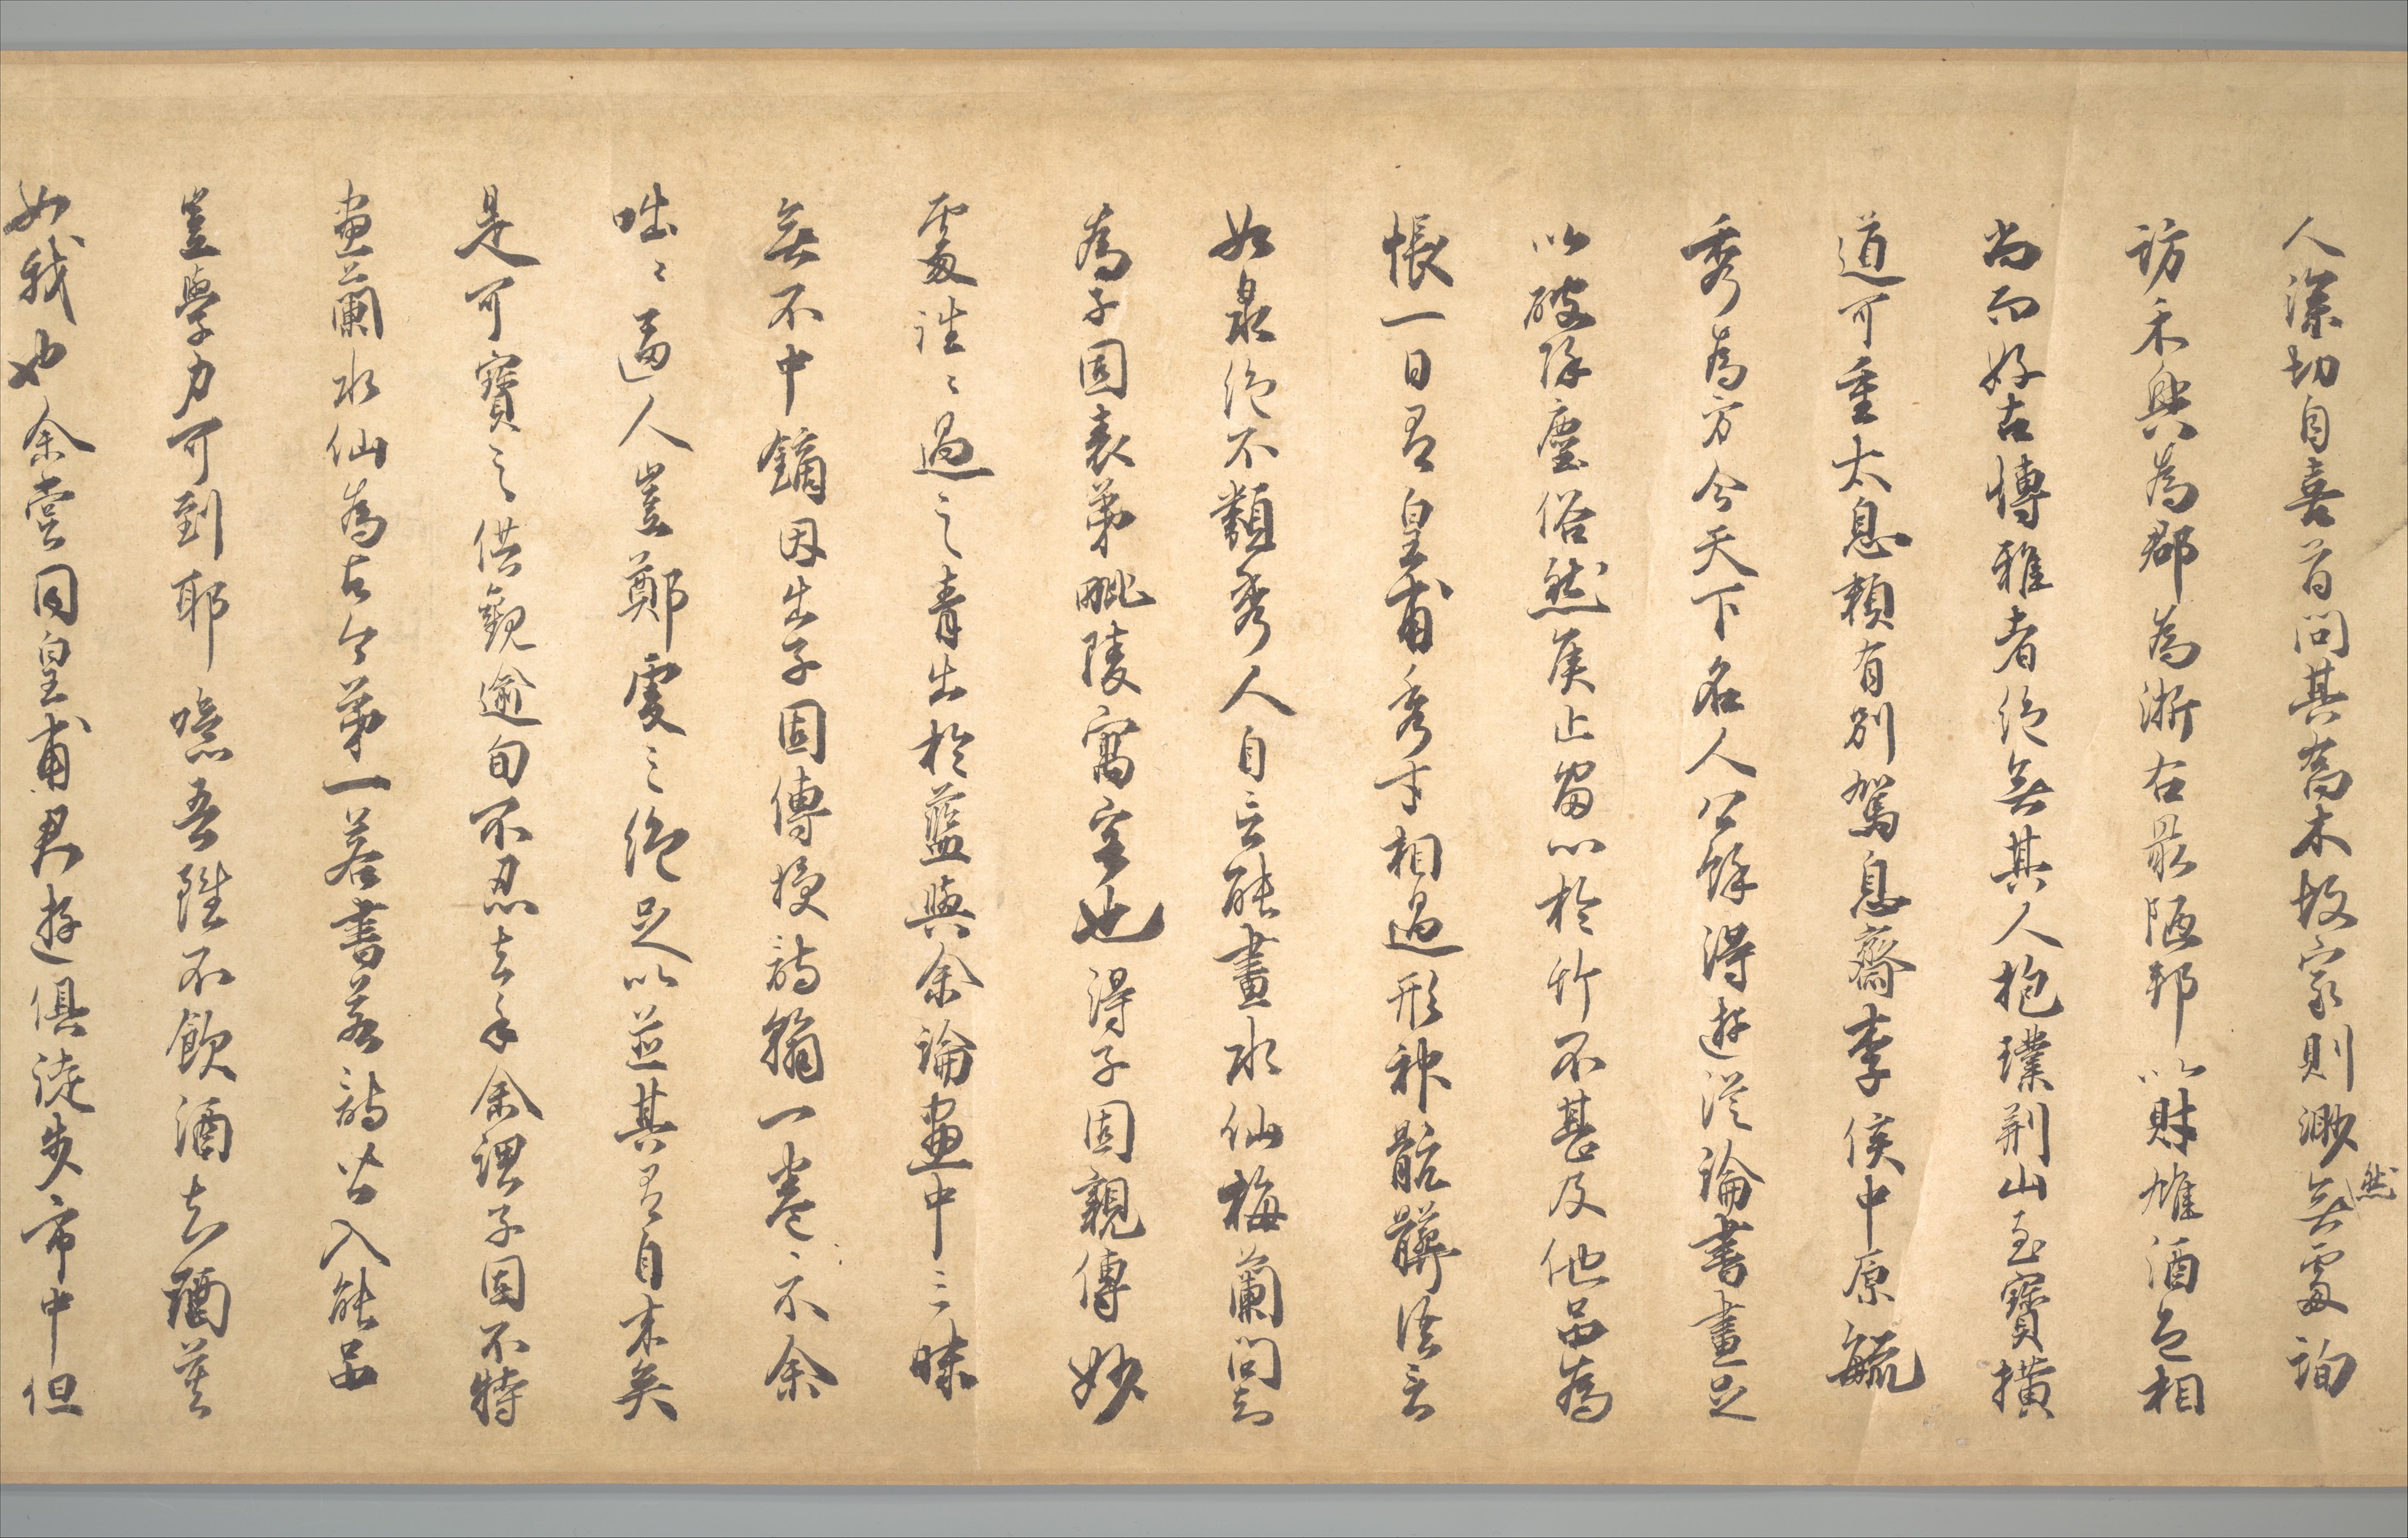 人深切自喜首問其喬木故家則渺然無處詢
訪禾興為郡為浙右最陋邦以財雄酒色相
尚而好古博雅者絕無其人抱璞荊山至寶橫
道可重太息賴有別駕息齋李侯中原毓
秀為方今天下名人公餘得遊從論書畫足
以破除塵俗然侯止留心於竹不甚及他品為
悵一日有皇甫秀才相過形神骯髒語言
如泉絕不類秀人自言能畫水仙梅蘭問知
為子固表弟毗陵寓室也得子固親傳妙
處往往過之青出於藍與余論畫中三昧
無不中鏑因出子固傳授詩翰一卷示余
咄咄逼人豈鄭虔三絕足以並其有自來矣
是可寶之供觀逾旬不忍去手余謂子固不特
畫蘭水仙為古今第一若書若詩皆入能品
豈學力可到耶噫吾雖不飲酒知酒莫
如我也余嘗同皇甫君遊俱徒步市中但